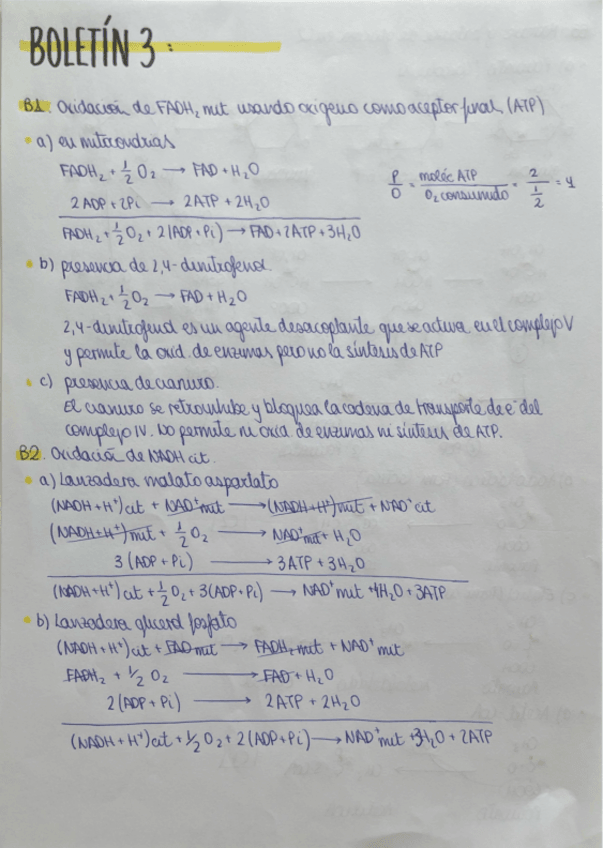 BOLETÍN 3:
B1. Oxidación de FADH₂ mit usando oxígeno como aceptor final (ATP)
a) en mitocondrias
FADH₂ + 1/2 O₂ → FAD + H₂O
2 ADP + 2Pi → 2ATP + 2H₂O
FADH₂ + 1/2 O₂ + 2(ADP + Pi) → FAD + 2ATP + 3H₂O
P/O = moléc ATP / O₂ consumido = 2 / 1/2 = 4
b) presencia de 2,4-dinitrofenol.
FADH₂ + 1/2 O₂ → FAD + H₂O
2,4-dinitrofenol es un agente desacoplante que se activa en el complejo V
y permite la oxid. de enzimas pero no la síntesis de ATP
c) presencia de cianuro.
El cianuro se y bloquea la cadena de transporte de e⁻ del
complejo IV. No permite ni oxid de enzimas ni síntesis de ATP.
B2. Oxidación de NADH cit.
a) Lanzadera malato aspartato
(NADH + H⁺) cit + NAD⁺mit → (NADH + H⁺) mit + NAD⁺ cit
(NADH + H⁺) mit + 1/2 O₂ → NAD⁺mit + H₂O
3 (ADP + Pi) → 3ATP + 3H₂O
(NADH + H⁺) cit + 1/2 O₂ + 3(ADP + Pi) → NAD⁺ mit + 4H₂O + 3ATP
b) Lanzadera glicerol fosfato
(NADH + H⁺) cit + FAD mit → FADH₂ mit + NAD⁺ mit
FADH₂ + 1/2 O₂ → FAD + H₂O
2 (ADP + Pi) → 2ATP + 2H₂O
(NADH + H⁺) cit + 1/2 O₂ + 2(ADP + Pi) → NAD⁺ mit + 3H₂O + 2ATP